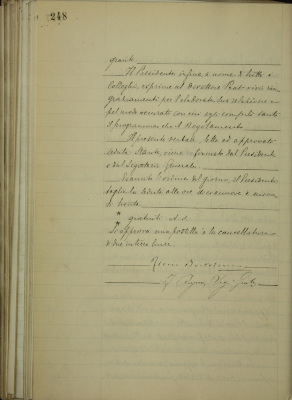 248
grante.
Il Presidente infine a nome di tutti i
Colleghi, esprime al Direttore Prat vivi rin
graziamenti per l'elaborata sua relazione e
pel modo accurato con cui egli compilò tanto
il programma che il Regolamento.
Il presente verbale, letto ed approvato
seduta stante, viene firmato dal Presidente
e dal Segretario Generale.
Esaurito l'ordine del giorno, il Presidente
toglie la seduta alle ore diciannove e minuti
trenta.
gratuiti A. S.
Si approva una postilla e la cancellatura
di due intere linee.